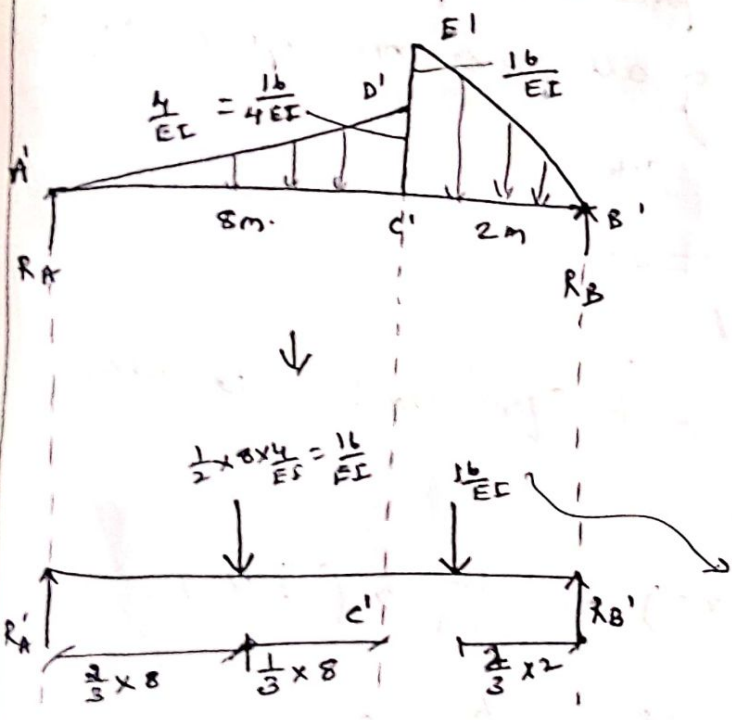 E'
D'
4/EI = 16/4EI
16/EI
A'
8m.
C'
2m
B'
RA
RB
1/2 × 8 × 4/EI = 16/EI
16/EI
RA'
C'
RB'
2/3 × 8
1/3 × 8
2/3 × 2